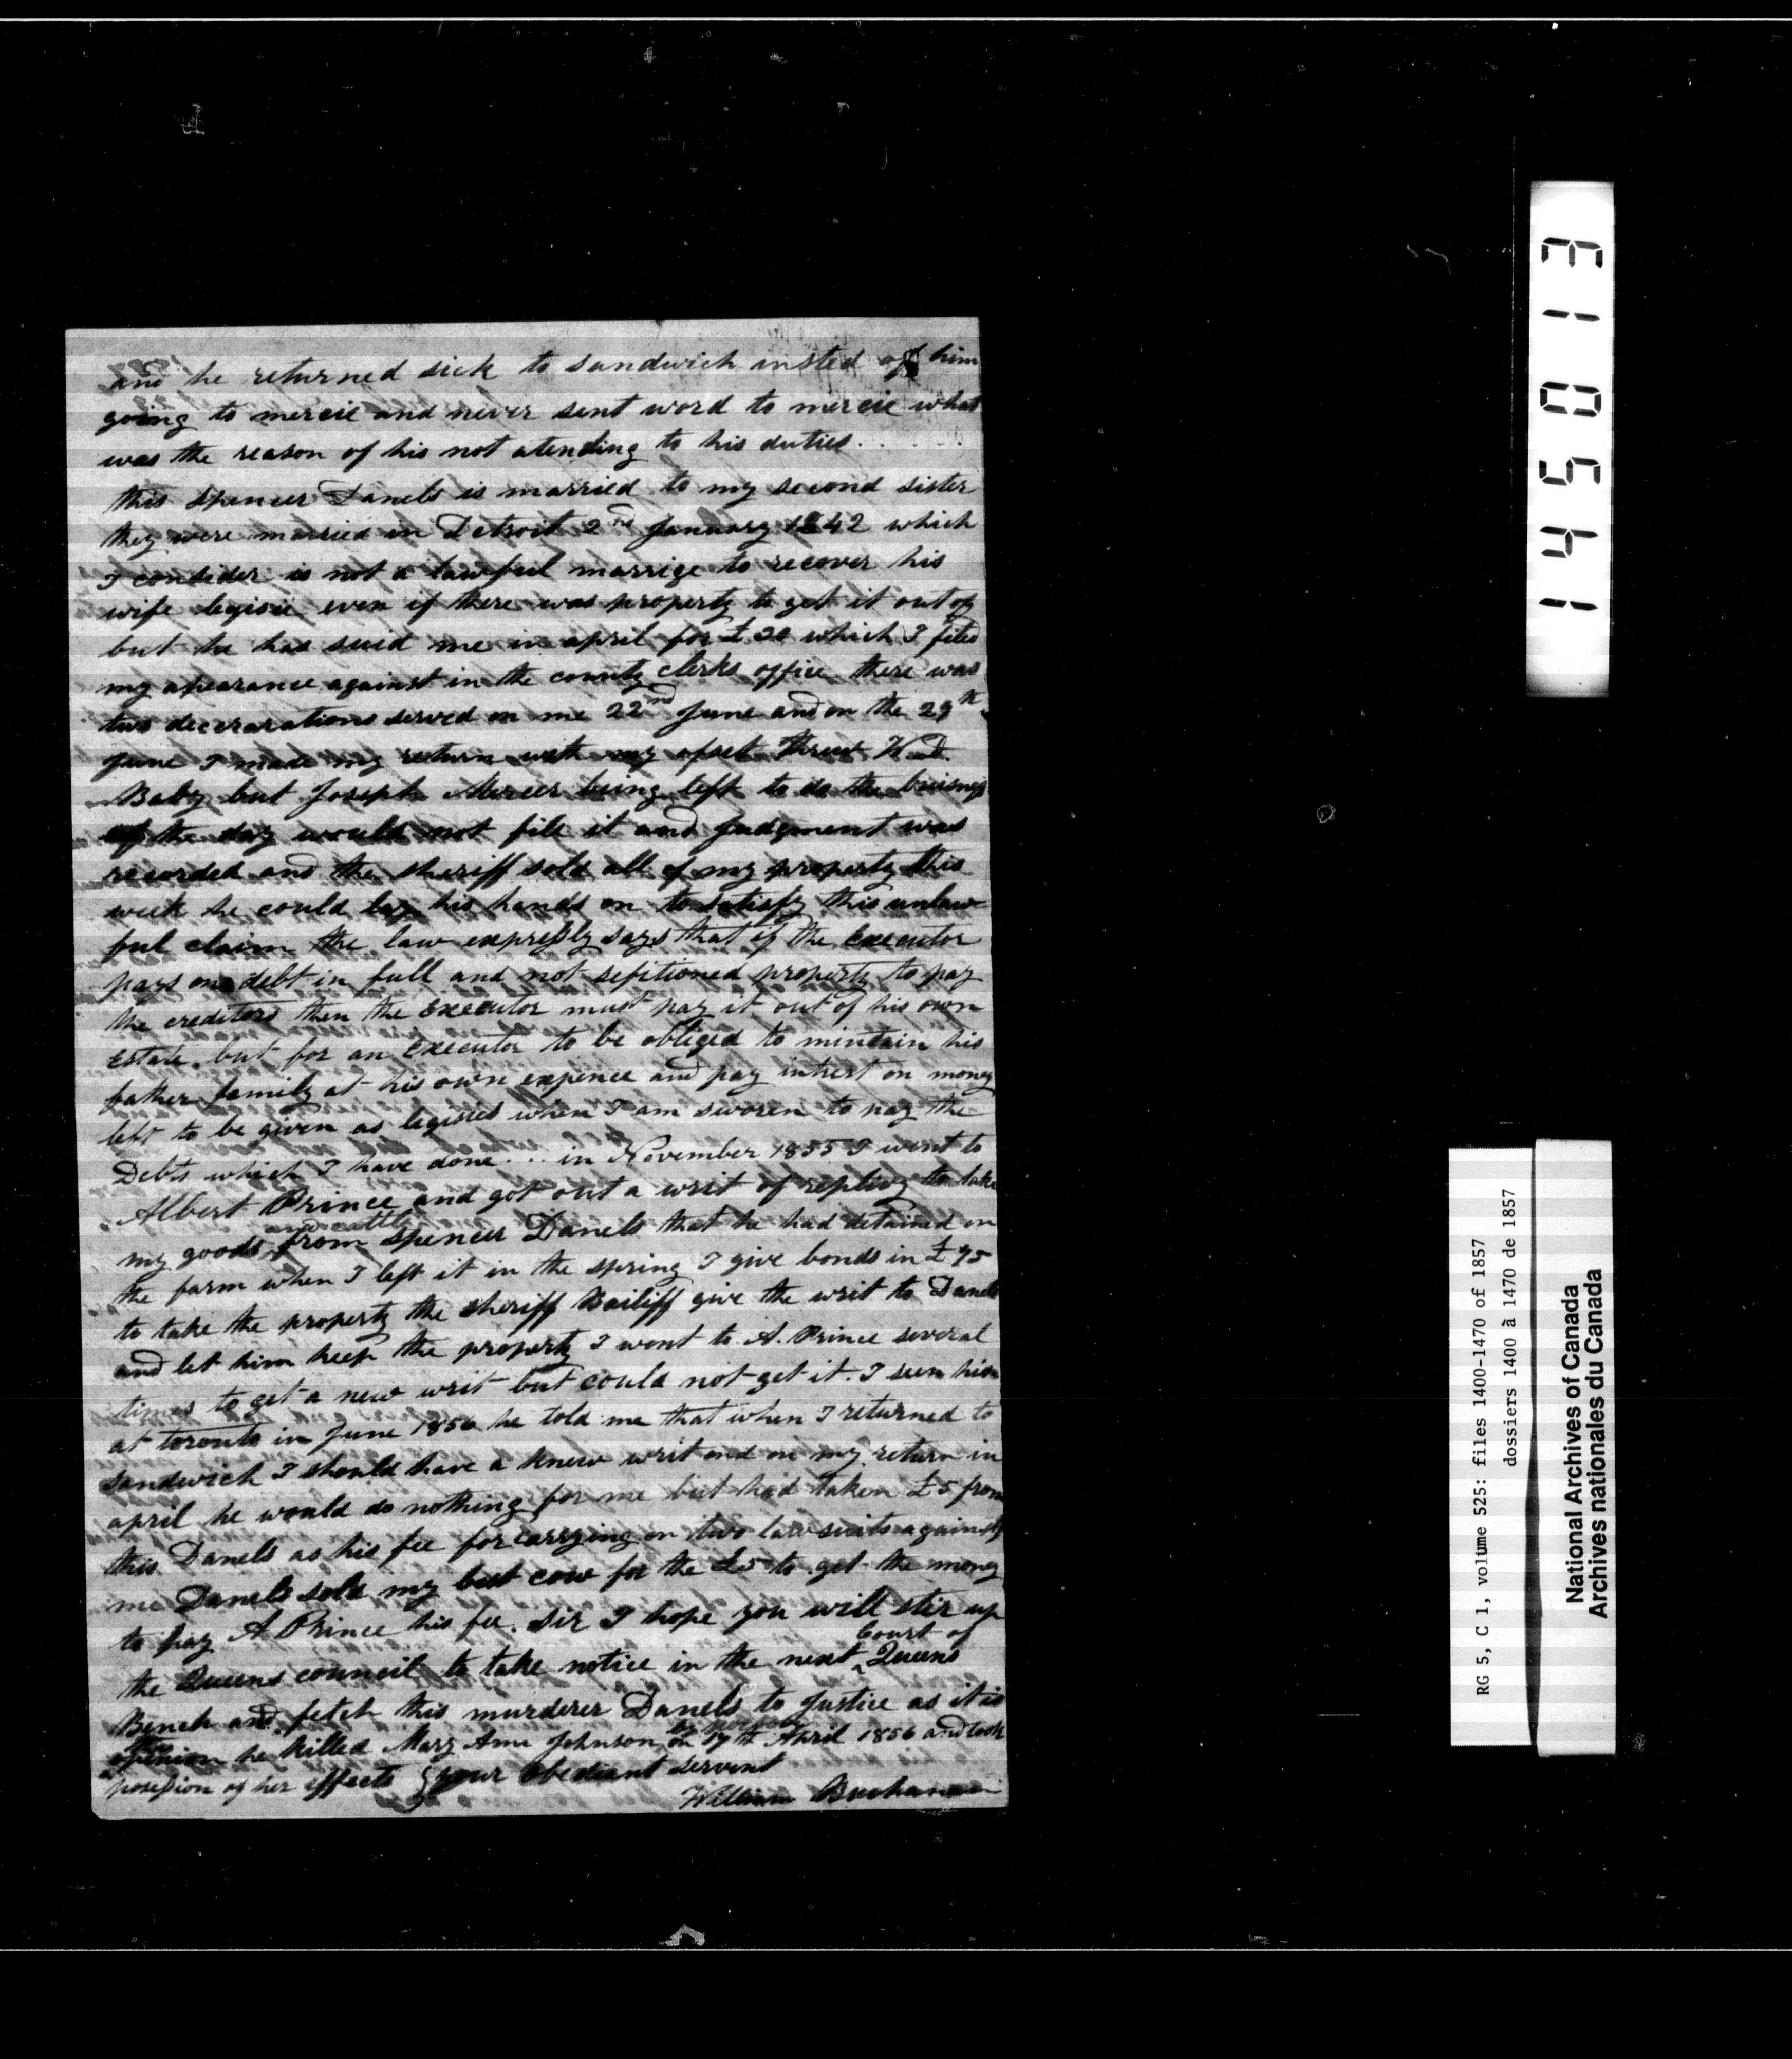 and he returned sick to sandwich insted of him
going to mercie and never sent word to mercie what
was the reason of his not atending to his duties.
this Spencer Danels is married to my second sister
they were married in Detroit 2nd January 1842 which
I consider is not a lawful marrige to recover his
wife legisie even if there was property to get it out of
but he has suid me in april for £20 which I filed
my apearance against in the county clerks office there was
two decerarations served on me 22nd June and on the 29th
June I made my return with my ofset threw W. D.
Baby but Joseph Mercer being left to do the buisness
of the day would not file it and Judgment was
recorded and the sheriff sold all of my property this
week he could lay his hands on to satisfy this unlaw
ful claim the law expressly says that if the Executor
pays one debt in full and not sefitioned property to pay
the creditors then the Executor must pay it out of his own
Estate. but for an Executor to be obliged to mintain his
father family at his own expence and pay intrest on money
left to be given as legisies when I am sworen to pay the
Debts which I have done ... in November 1855 I went to
Albert Prince and got out a writ of replivy to take
and cattle
my goods from Spencer Danels that he had detained on
the farm when I left it in the spring I give bonds in £75
to take the property the sheriff Bailiff give the writ to Danels
and let him keep the property I went to A. Prince several
times to get a new writ but could not get it. I seen him
at toronto in June 1856 he told me that when I returned to
sandwich I should have a knew writ and on my return in
april he would do nothing for me but had taken £5 from
this Danels as his fee for carrying on two law suits against
me Danels sold my best cow for the £5 to get the money
to pay A Prince his fee. sir I hope you will stir up
Court of
the Queens council to take notice in the next Queens
Bench and fetch this murderer Danels to Justice as it is
opinion he killed Mary Ann Johnson on 17th April 1856 and took
posession of her effects your obediant servent
William Buchanan
145013
RG 5, C 1, volume 525: files 1400-1470 of 1857
dossiers 1400 à 1470 de 1857
National Archives of Canada
Archives nationales du Canada